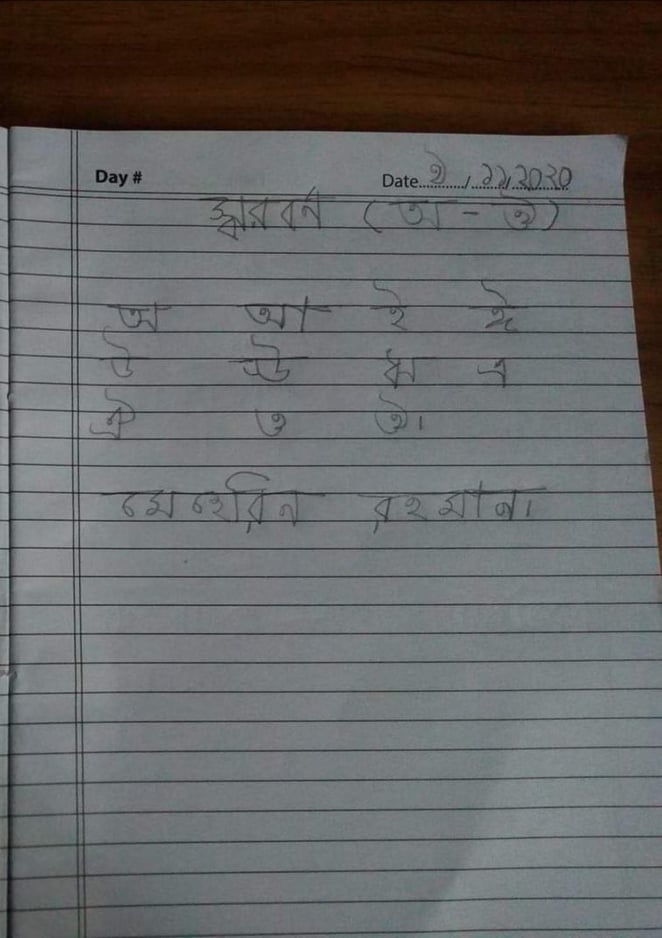 Day # Date ২/১১/২০২০
স্বরবর্ণ (অ - ঔ)
অ আ ই ঈ
উ ঊ ঋ এ
ঐ ও ঔ।
মেহেরিন রহমান।